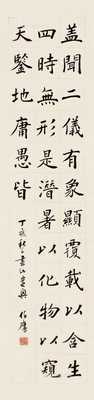 盖聞二儀有象顯覆載以含生
四時無形是潛暑以化物以窺
天鑒地庸愚皆
丁亥秋書於
伯鷹